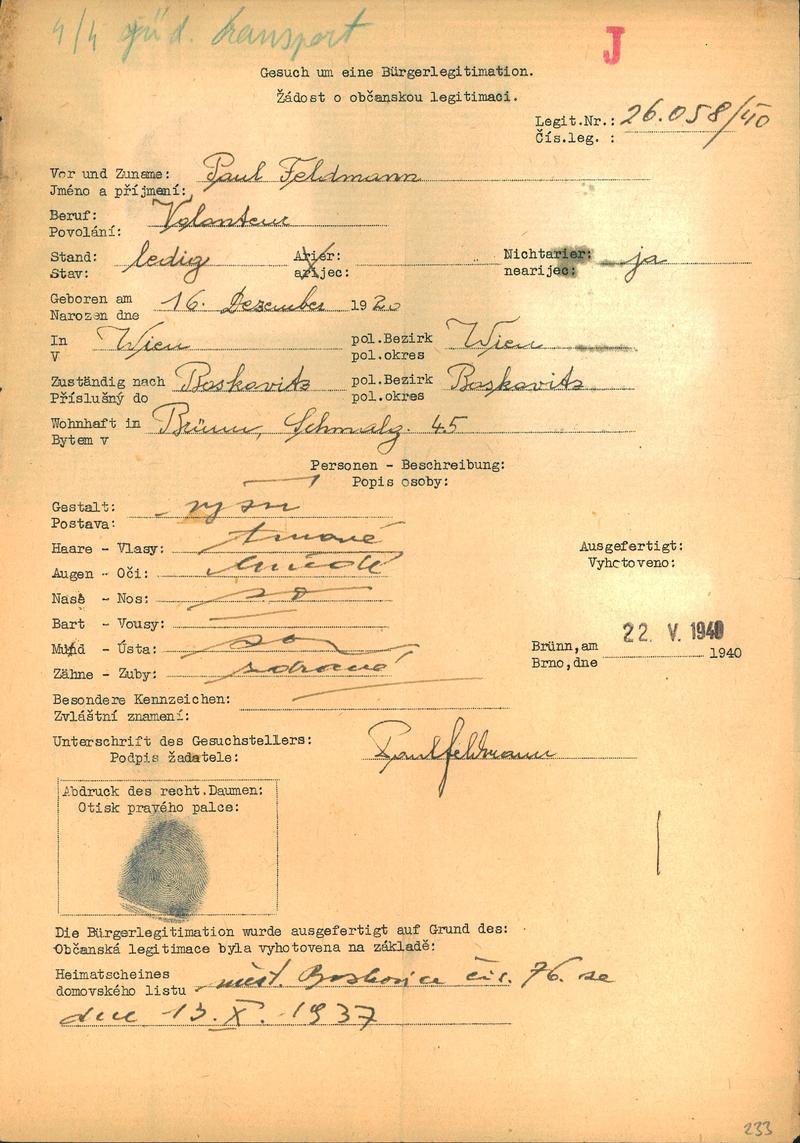 4/4 žid. transport
J
Gesuch um eine Bürgerlegitimation.
Žádost o občanskou legitimaci.
Legit.Nr.: 26.058/40
Čís.leg. :
Vor und Zuname: Paul Feldmann
Jméno a příjmení:
Beruf: Volonteur
Povolání:
Stand: ledig Arier: Nichtarier: ja
Stav: arijec: nearijec:
Geboren am 16. Dezember 1920
Narozen dne
In Wien pol.Bezirk Wien
V pol.okres
Zuständig nach Boskovitz pol.Bezirk Boskovitz
Příslušný do pol.okres
Wohnhaft in Brünn, Schmalg. 45
Bytem v
Personen - Beschreibung:
Popis osoby:
Gestalt:
Postava:
Haare - Vlasy: tmavé
Augen - Oči: hnědé
Nase - Nos:
Bart - Vousy:
Mund - Ústa:
Zähne - Zuby: zdravé
Ausgefertigt:
Vyhotoveno:
22. V. 1940
Brünn,am 1940
Brno,dne
Besondere Kennzeichen:
Zvláštní znamení:
Unterschrift des Gesuchstellers: Paul Feldmann
Podpis žadatele:
Abdruck des recht.Daumen:
Otisk pravého palce:
Die Bürgerlegitimation wurde ausgefertigt auf Grund des:
Občanská legitimace byla vyhotovena na základě:
Heimatscheines
domovského listu měst. Boskovice čís. 76. ze
dne 13. X. 1937
233